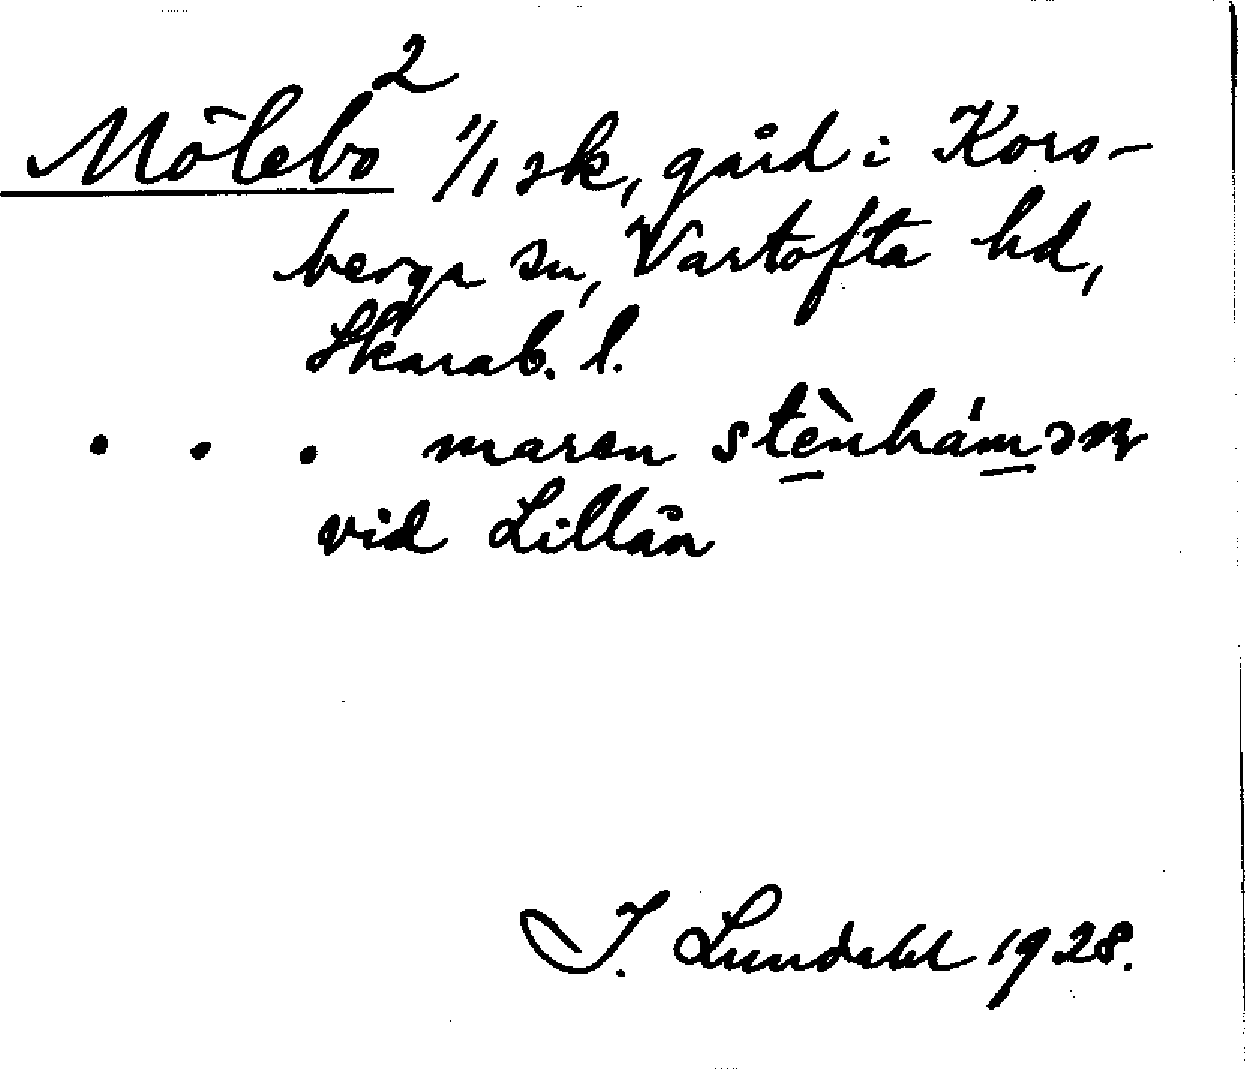 Mölebo² 1/1 sk, gård i Kors-
berga sn, Vartofta hd,
Skarab. l.
. . . maren stènhámɔʀ
vid Lillån
I. Lundahl 1928.